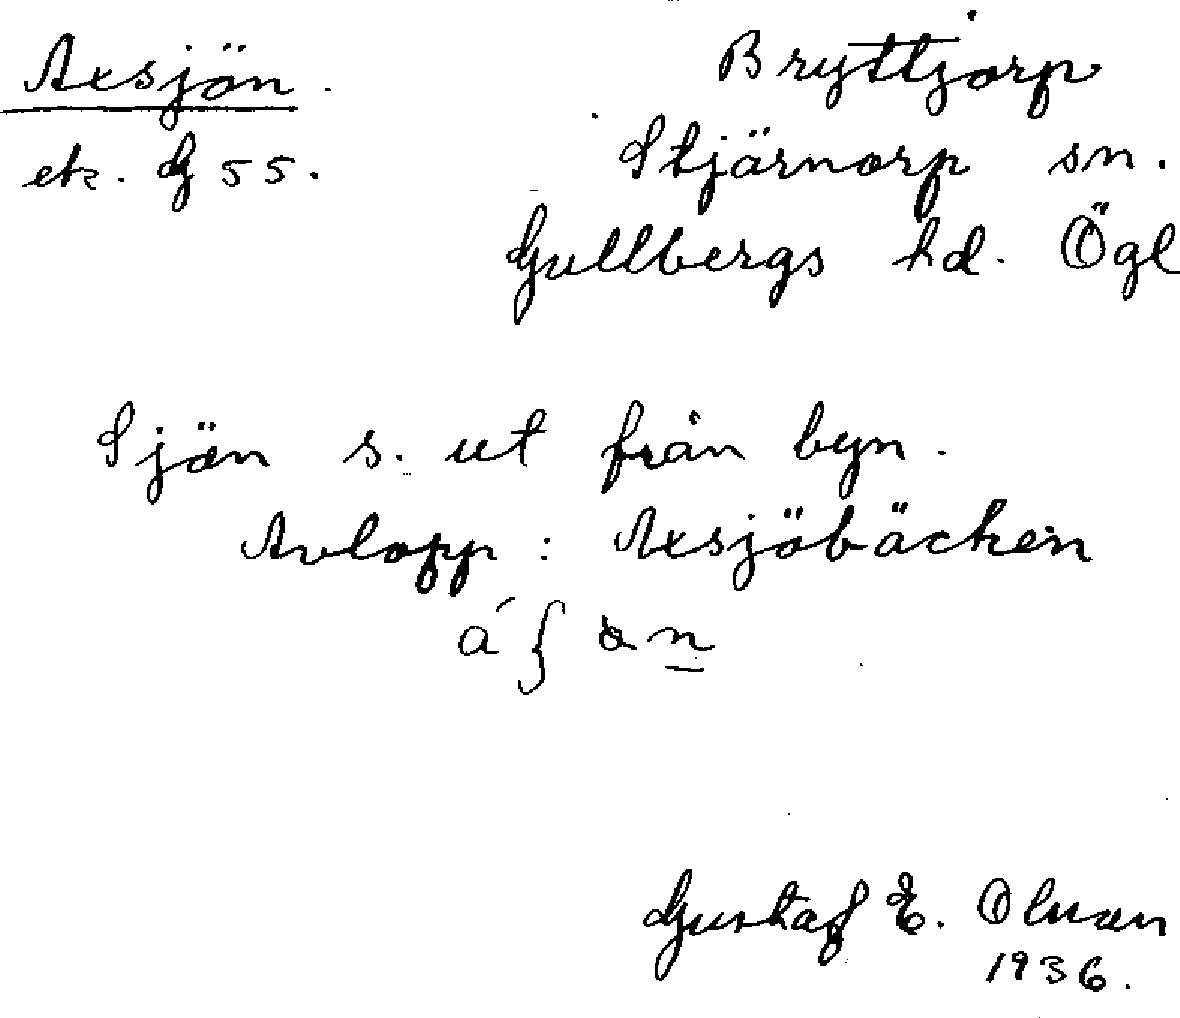 Axsjön.
Bryttjorp
ek. G 55.
Stjärnorp sn.
Gullbergs hd. Ögl
Sjön s. ut från byn.
Avlopp: Axsjöbäcken
Gustaf E. Olman
1936.